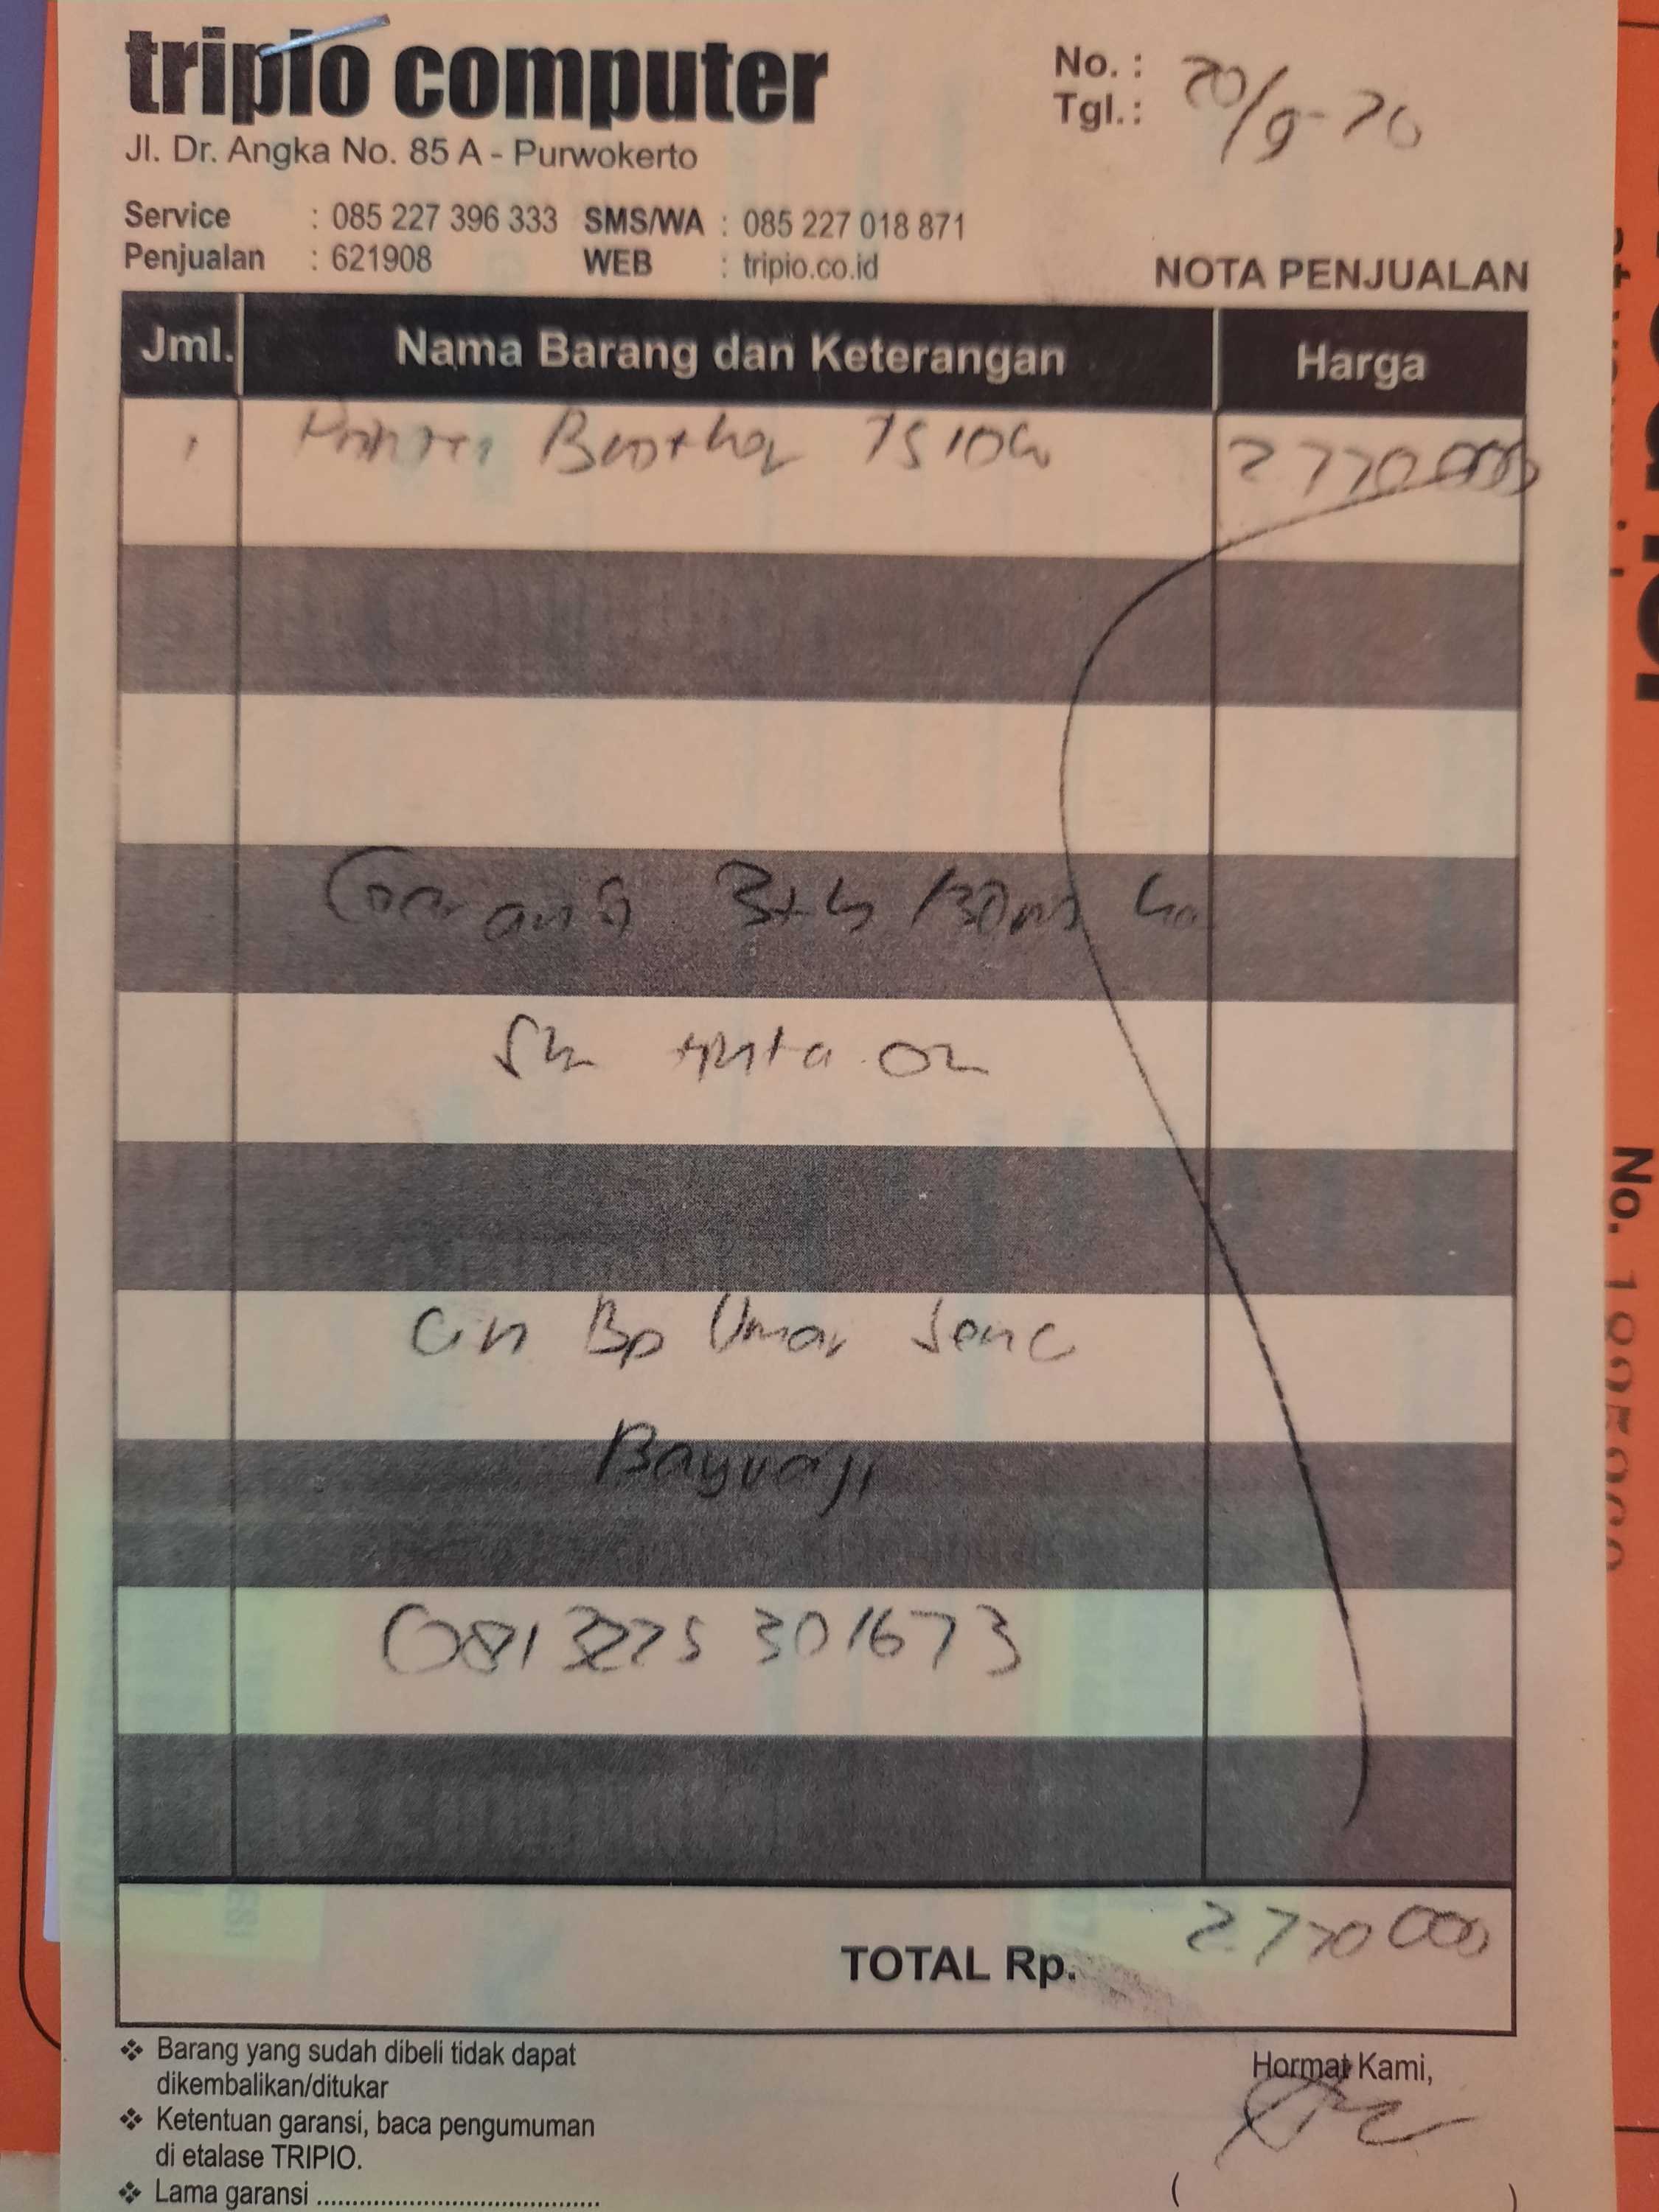 tripio computer
Jl. Dr. Angka No. 85 A - Purwokerto
No. :
Tgl. : 20/9-20
Service : 085 227 396 333 SMS/WA : 085 227 018 871
Penjualan : 621908 WEB : tripio.co.id
NOTA PENJUALAN
Jml. Nama Barang dan Keterangan Harga
1 Printer Brother T510W 2770000
Garansi 3th /30rb
tinta
Bp Umar
Bayuaji
081 3225 301673
TOTAL Rp. 2770000
Barang yang sudah dibeli tidak dapat
dikembalikan/ditukar
Ketentuan garansi, baca pengumuman
di etalase TRIPIO.
Lama garansi ........................................
Hormat Kami,
( )
No.